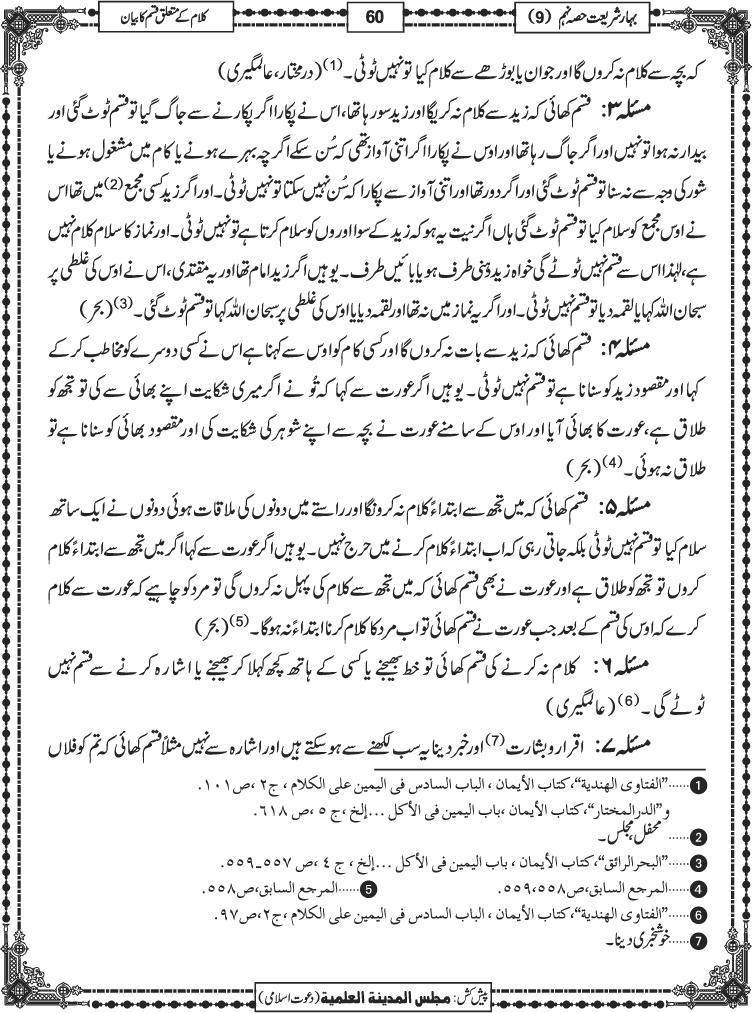 بہار شریعت حصہ نہم (9)
60
کلام کے متعلق قسم کا بیان
کہ بچہ سے کلام نہ کروں گا اور جوان یا بوڑھے سے کلام کیا تو نہیں ٹوٹی۔(1) (درمختار، عالمگیری)
مسئلہ ۳: قسم کھائی کہ زید سے کلام نہ کریگا اور زید سو رہا تھا، اس نے پکارا اگر پکارنے سے جاگ گیا تو قسم ٹوٹ گئی اور
بیدار نہ ہوا تو نہیں اور اگر جاگ رہا تھا اور اوس نے پکارا اگر اتنی آواز تھی کہ سُن سکے اگرچہ بہرے ہونے یا کام میں مشغول ہونے یا
شور کی وجہ سے نہ سنا تو قسم ٹوٹ گئی اور اگر دور تھا اور اتنی آواز سے پکارا کہ سُن نہیں سکتا تو نہیں ٹوٹی۔ اور اگر زید کسی مجمع(2) میں تھا اس
نے اوس مجمع کو سلام کیا تو قسم ٹوٹ گئی ہاں اگر نیت یہ ہو کہ زید کے سوا اوروں کو سلام کرتا ہے تو نہیں ٹوٹی۔ اور نماز کا سلام کلام نہیں
ہے، لہٰذا اس سے قسم نہیں ٹوٹے گی خواہ زید دہنی طرف ہو یا بائیں طرف۔ یوہیں اگر زید امام تھا اور یہ مقتدی، اس نے اوس کی غلطی پر
سبحان اللہ کہا یا لقمہ دیا تو قسم نہیں ٹوٹی۔ اور اگر یہ نماز میں نہ تھا اور لقمہ دیا یا اوس کی غلطی پر سبحان اللہ کہا تو قسم ٹوٹ گئی۔(3) (بحر)
مسئلہ ۴: قسم کھائی کہ زید سے بات نہ کروں گا اور کسی کام کو اوس سے کہنا ہے اس نے کسی دوسرے کو مخاطب کر کے
کہا اور مقصود زید کو سنانا ہے تو قسم نہیں ٹوٹی۔ یوہیں اگر عورت سے کہا کہ تُو نے اگر میری شکایت اپنے بھائی سے کی تو تجھ کو
طلاق ہے، عورت کا بھائی آیا اور اوس کے سامنے عورت نے بچہ سے اپنے شوہر کی شکایت کی اور مقصود بھائی کو سنانا ہے تو
طلاق نہ ہوئی۔(4) (بحر)
مسئلہ ۵: قسم کھائی کہ میں تجھ سے ابتداءً کلام نہ کرونگا اور راستے میں دونوں کی ملاقات ہوئی دونوں نے ایک ساتھ
سلام کیا تو قسم نہیں ٹوٹی بلکہ جاتی رہی کہ اب ابتداءً کلام کرنے میں حرج نہیں۔ یوہیں اگر عورت سے کہا اگر میں تجھ سے ابتداءً کلام
کروں تو تجھ کو طلاق ہے اور عورت نے بھی قسم کھائی کہ میں تجھ سے کلام کی پہل نہ کروں گی تو مرد کو چاہیے کہ عورت سے کلام
کرے کہ اوس کی قسم کے بعد جب عورت نے قسم کھائی تو اب مرد کا کلام کرنا ابتداءً نہ ہوگا۔(5) (بحر)
مسئلہ ۶: کلام نہ کرنے کی قسم کھائی تو خط بھیجنے یا کسی کے ہاتھ کچھ کہلا کر بھیجنے یا اشارہ کرنے سے قسم نہیں
ٹوٹے گی۔(6) (عالمگیری)
مسئلہ ۷: اقرار و بشارت(7) اور خبر دینا یہ سب لکھنے سے ہو سکتے ہیں اور اشارہ سے نہیں مثلاً قسم کھائی کہ تم کو فلاں
1 ...... "الفتاوی الهندیة"، کتاب الأیمان، الباب السادس فی الیمین علی الکلام، ج۲، ص۱۰۱.
و "الدرالمختار"، کتاب الأیمان، باب الیمین فی الأکل ...إلخ، ج۵، ص۶۱۸.
2 ...... محفل، مجلس۔
3 ...... "البحرالرائق"، کتاب الأیمان، باب الیمین فی الأکل ...إلخ، ج٤، ص۵۵۷-۵۵۹.
4 ...... المرجع السابق، ص۵۵۸،۵۵۹. 5 ...... المرجع السابق، ص۵۵۸.
6 ...... "الفتاوی الهندیة"، کتاب الأیمان، الباب السادس فی الیمین علی الکلام، ج۲، ص۹۷.
7 ...... خوشخبری دینا۔
پیش کش: مجلس المدینة العلمیة (دعوت اسلامی)